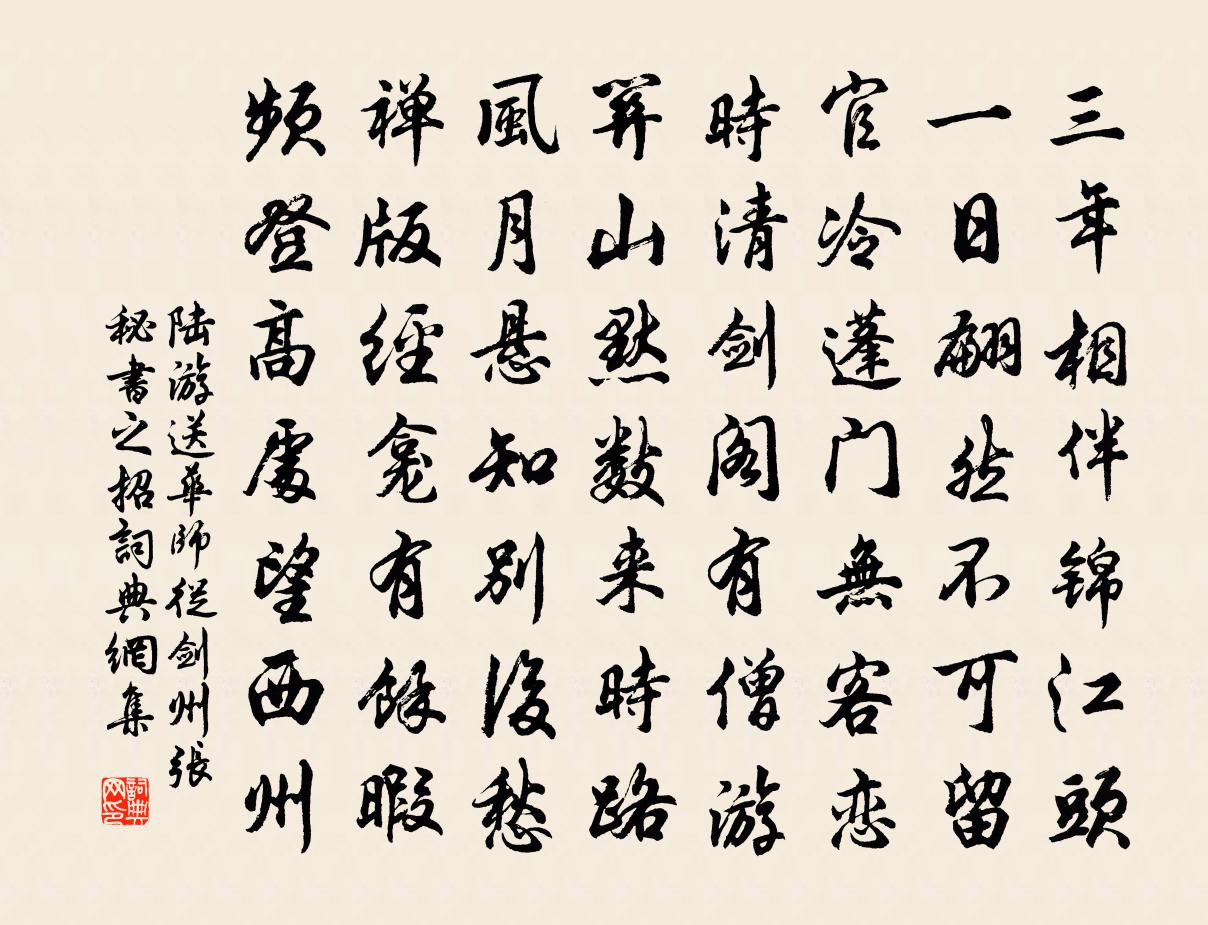 三年相伴锦江頭
一日翩然不可留
官冷蓬门無客恋
時清剑阁有僧游
関山黙數来時路
風月悬知别後愁
禅版經龛有餘暇
频登高處望西州
陆游送華師從剑州張
秘書之招詞典網集
詞典网印